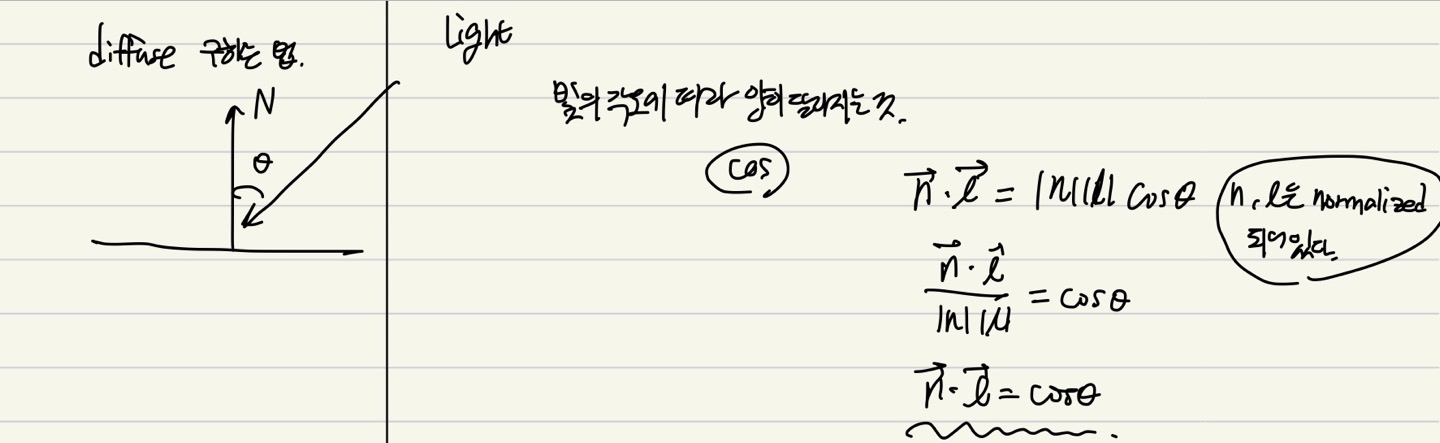 diffuse 구하는 법.
N
θ
Light
빛의 각도에 따라 양이 달라지는 것.
cos
n⃗·l⃗ = |n||l| cosθ
n, l은 normalized
되어있다.
n⃗·l⃗ / |n||l| = cosθ
n⃗·l⃗ = cosθ